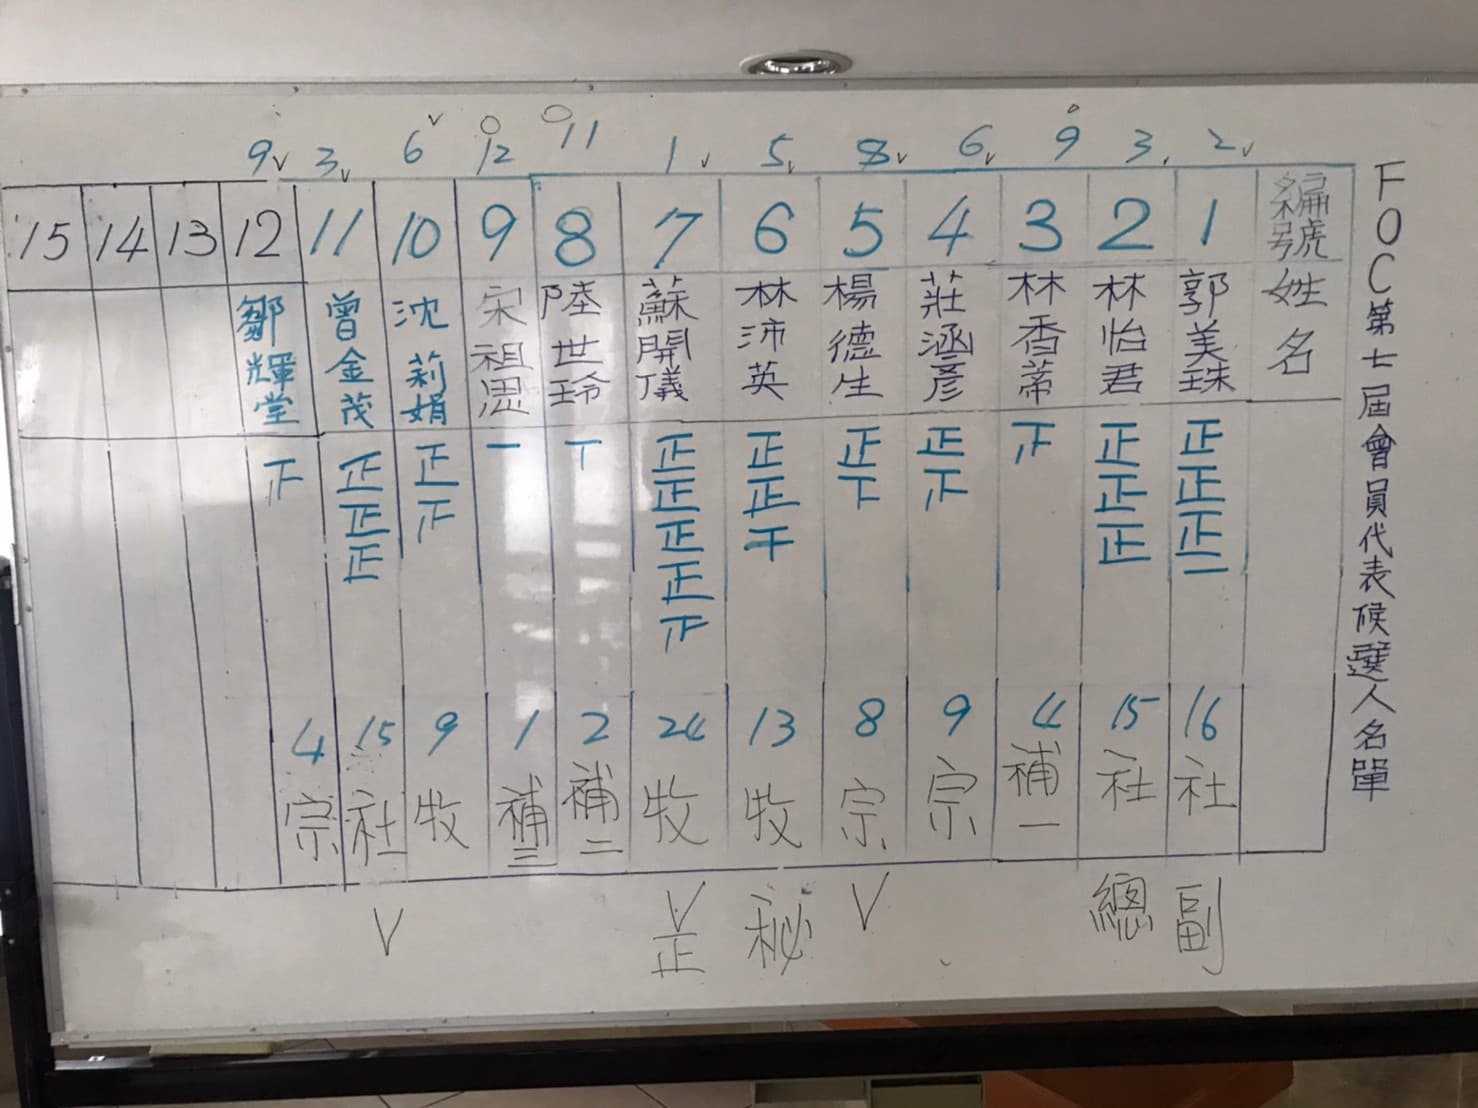 FOC第七屆會員代表候選人名單
2 3 9 6 8 5 1 11 12 6 3 9
編號 1 2 3 4 5 6 7 8 9 10 11 12 13 14 15
姓名
郭美珠
林怡君
林香蒂
莊涵彥
楊德生
林沛英
蘇開儀
陸世玲
宋祖思
沈莉娟
曾金茂
鄒輝堂
正正正一
正正正
正
正正
正下
正正干
正正正正正
丅
一
正正
正正正
正
16 15 4 9 8 13 24 2 1 9 15 4
社 社 補一 宗 宗 牧 牧 補二 補三 牧 社 宗
副 總 V 秘 V V
正